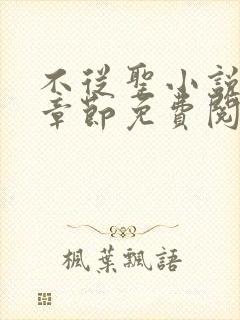 不從聖小說
章節免費閱
楓葉飄語